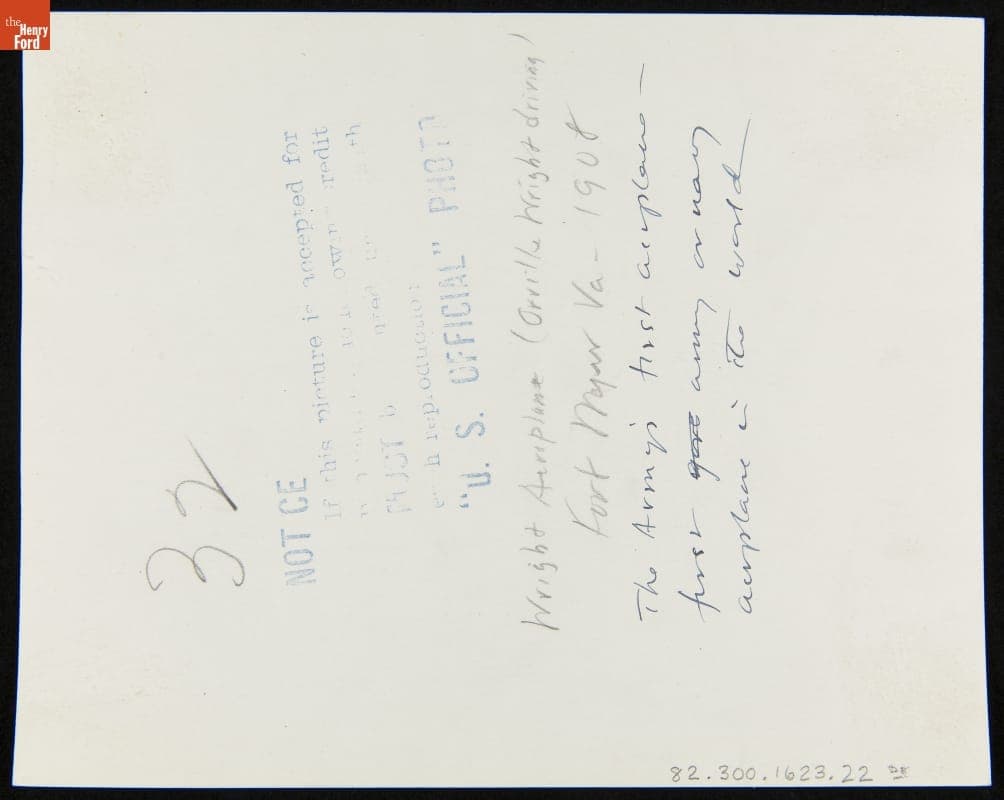 the
Henry
Ford
32
NOT CE
If this picture is accepted for
own redit
MUST b
h reproduction
"U. S. OFFICIAL" PHOTO
Wright Aeroplane (Orville Wright driving)
Fort Myer Va - 1908
The Army's first aeroplane —
first army or navy
aeroplane in the world —
82.300.1623.22